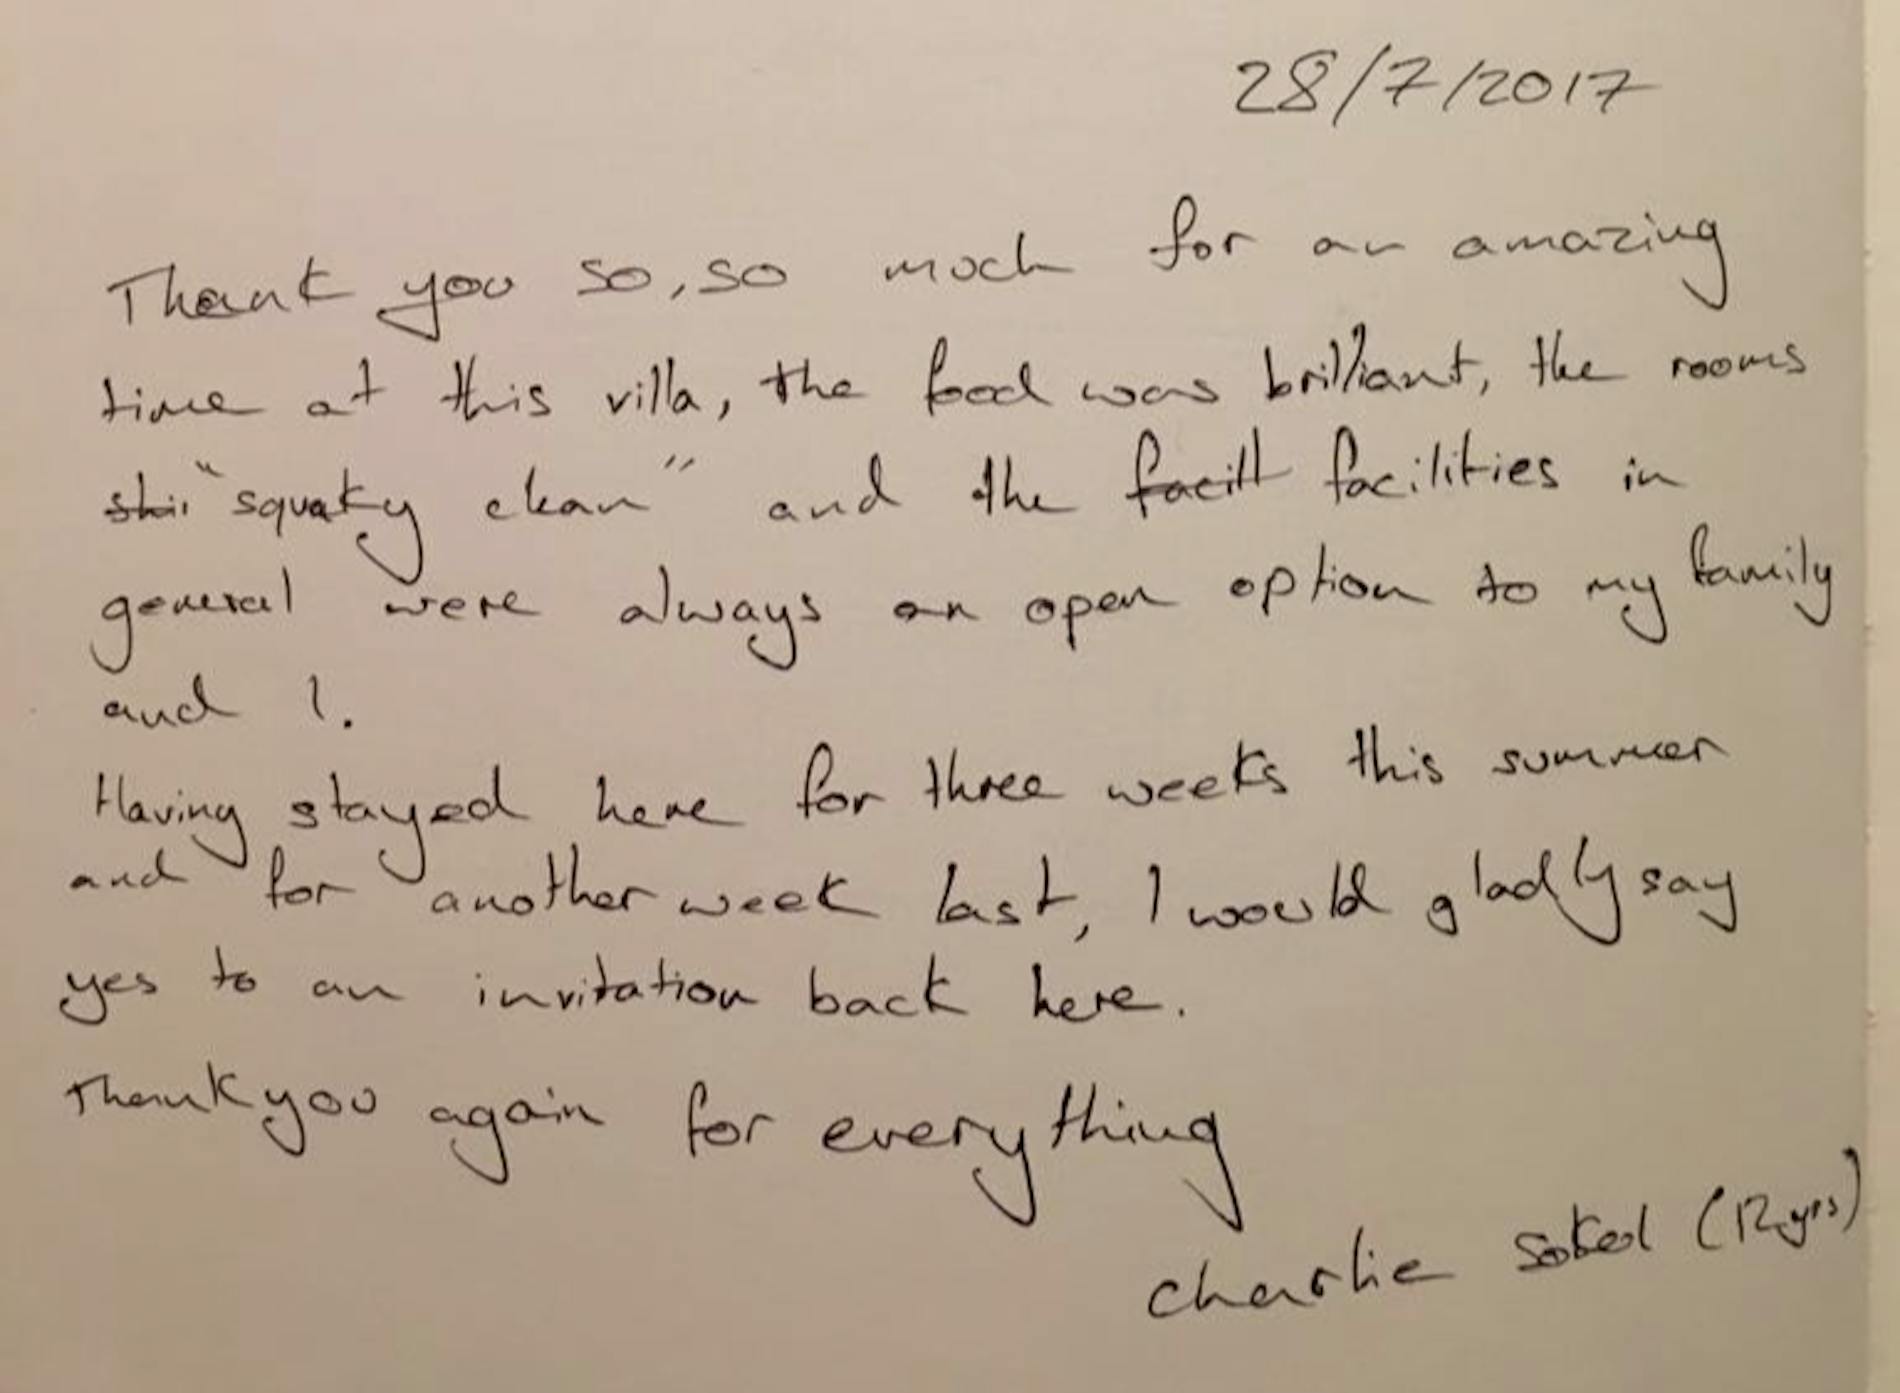 28/7/2017
Thank you so, so much for an amazing
time at this villa, the food was brilliant, the rooms
"squaky clean" and the facill facilities in
general were always an open option to my family
and I.
Having stayed here for three weeks this summer
and for another week last, I would gladly say
yes to an invitation back here.
Thankyou again for everything
Charlie (12yrs)